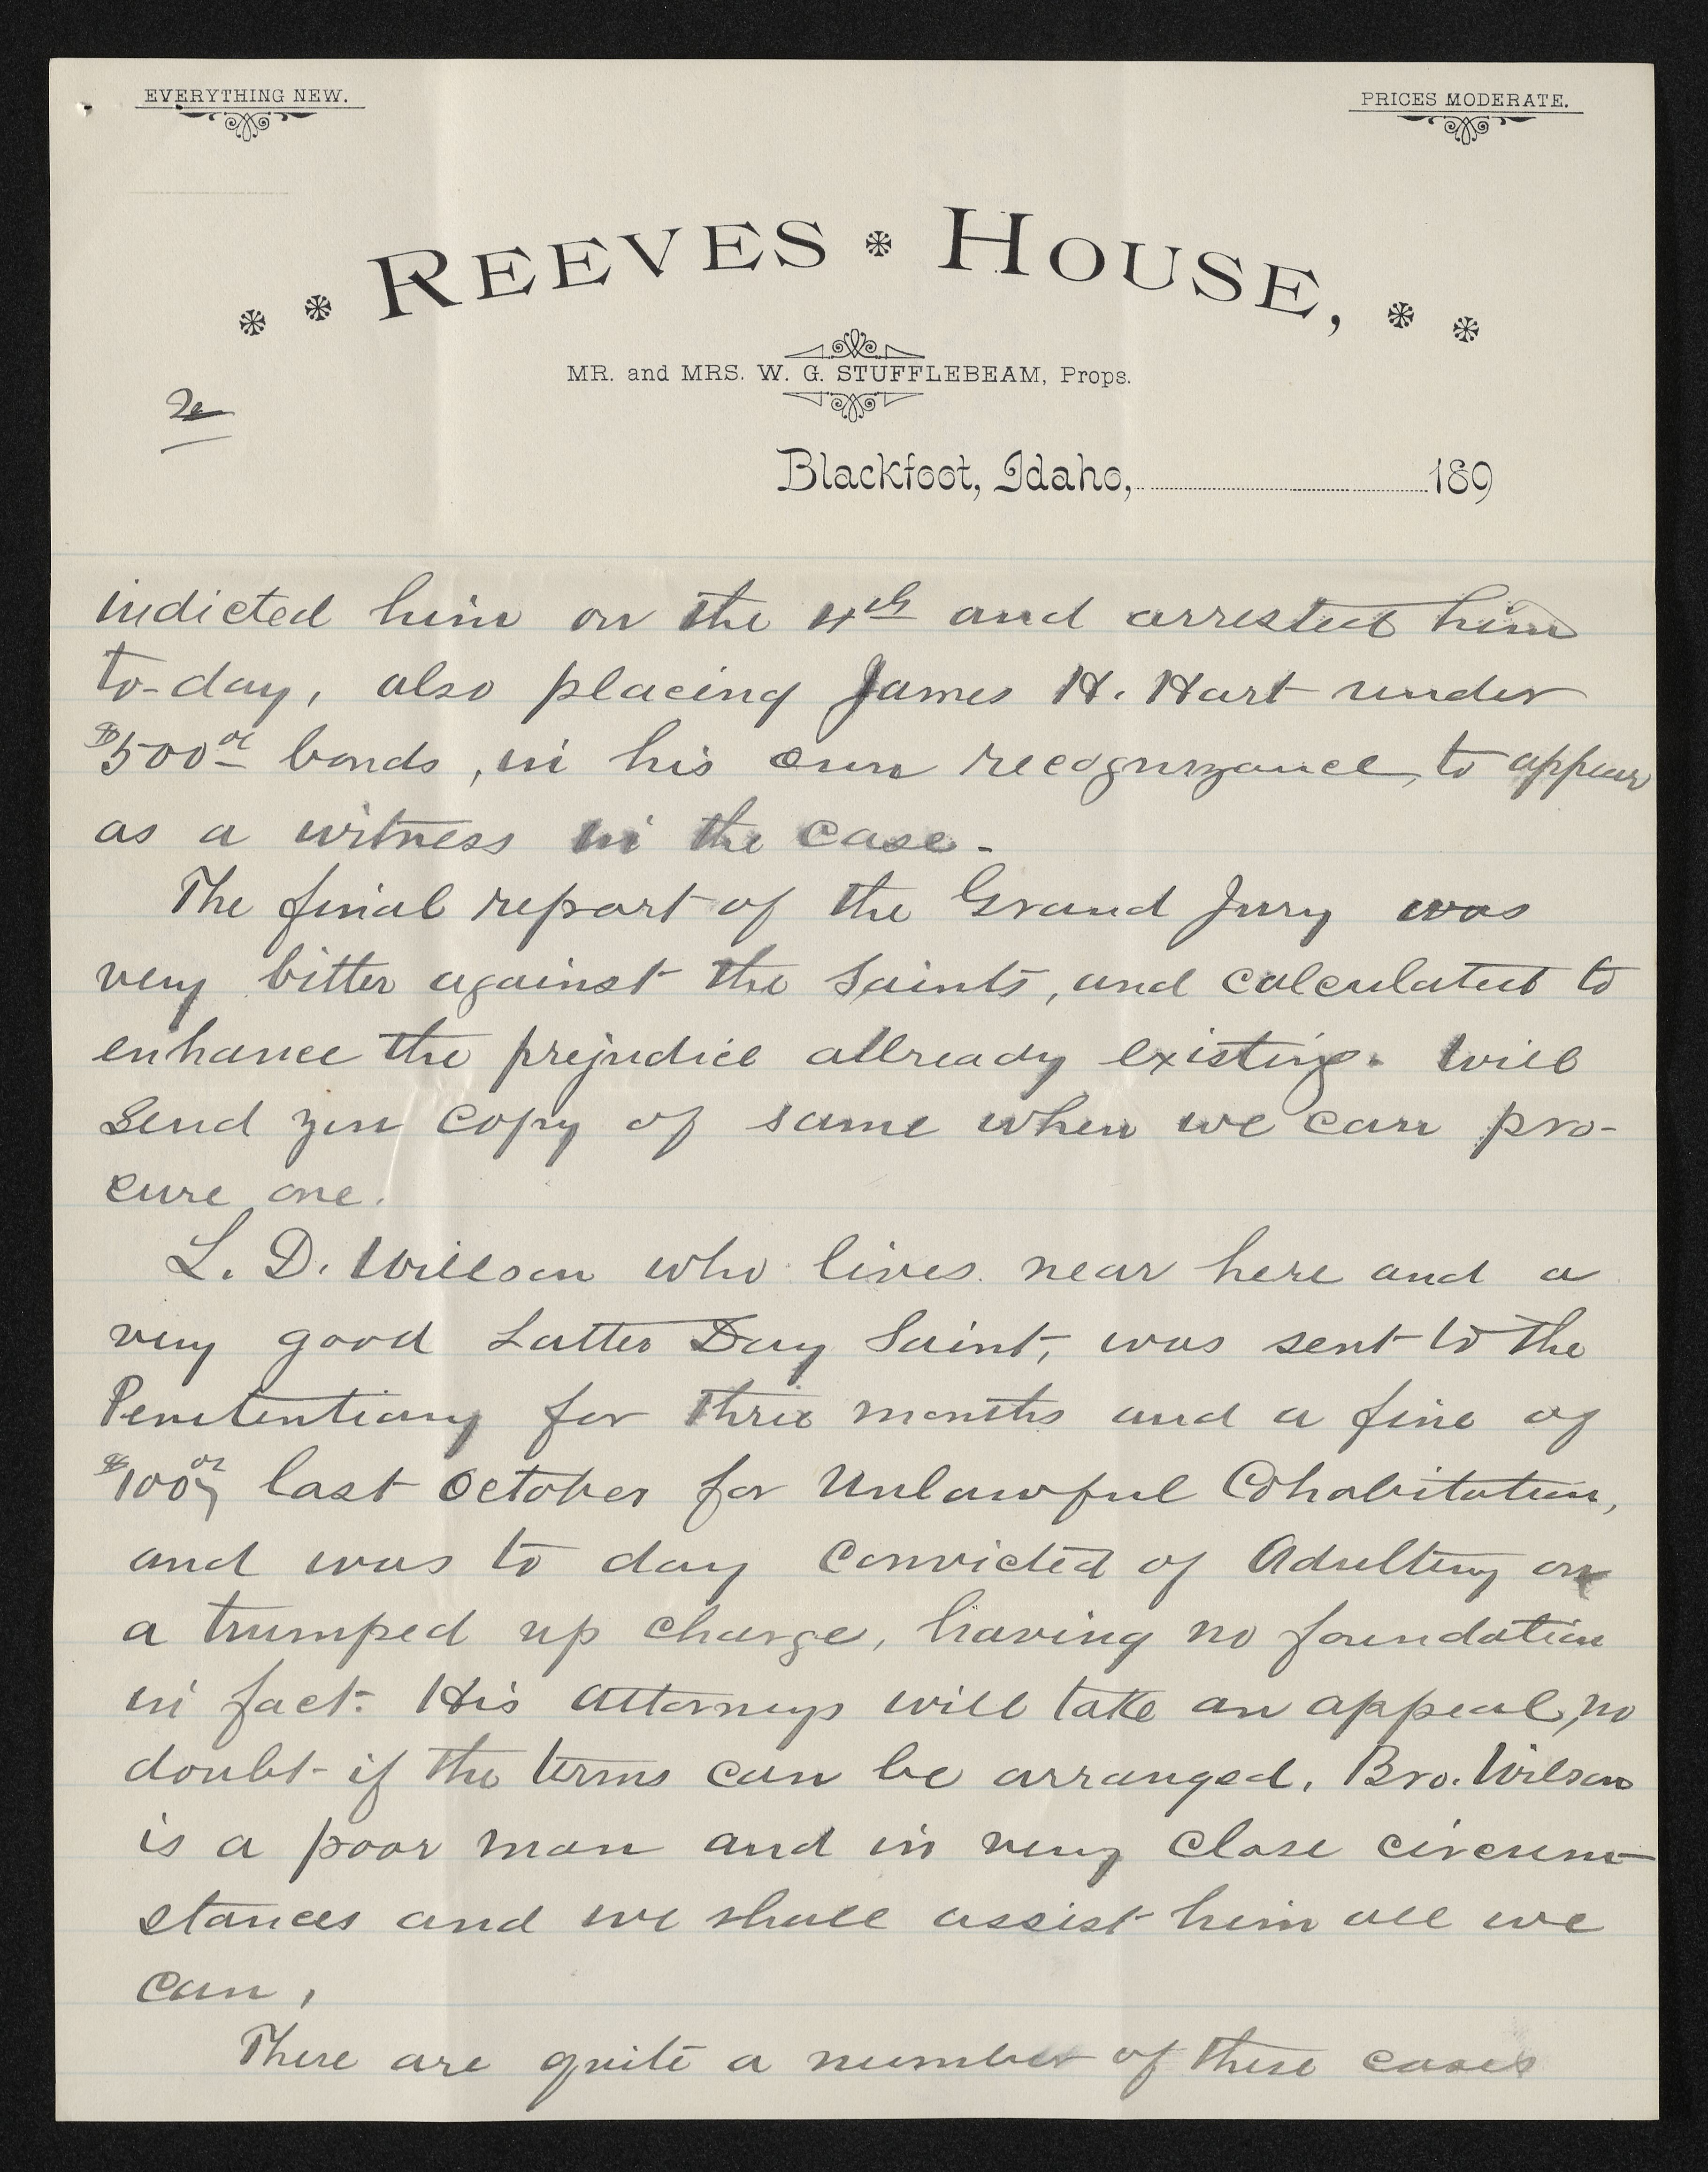 EVERYTHING NEW.
PRICES MODERATE.
REEVES * HOUSE,
MR. and MRS. W. G. STUFFLEBEAM, Props.
2
Blackfoot, Idaho, 189
indicted him on the 4th and arrested him
to-day, also placing James H. Hart under
$500 00 bonds, in his own recognizance, to appear
as a witness in the case.
The final report of the Grand Jury was
very bitter against the Saints, and calculated to
enhance the prejudice allready existing. Will
send you copy of same when we can pro-
cure one.
L. D. Willson who lives near here and a
very good Latter Day Saint, was sent to the
Penitentiary for three months and a fine of
$100 00 last October for Unlawful Cohabitation,
and was to day convicted of Adultery on
a trumped up charge, having no foundation
in fact. His attorneys will take an appeal, no
doubt if the terms can be arranged. Bro. Wilson
is a poor man and in very close circum-
stances and we shall assist him all we
can,
There are quite a number of these cases